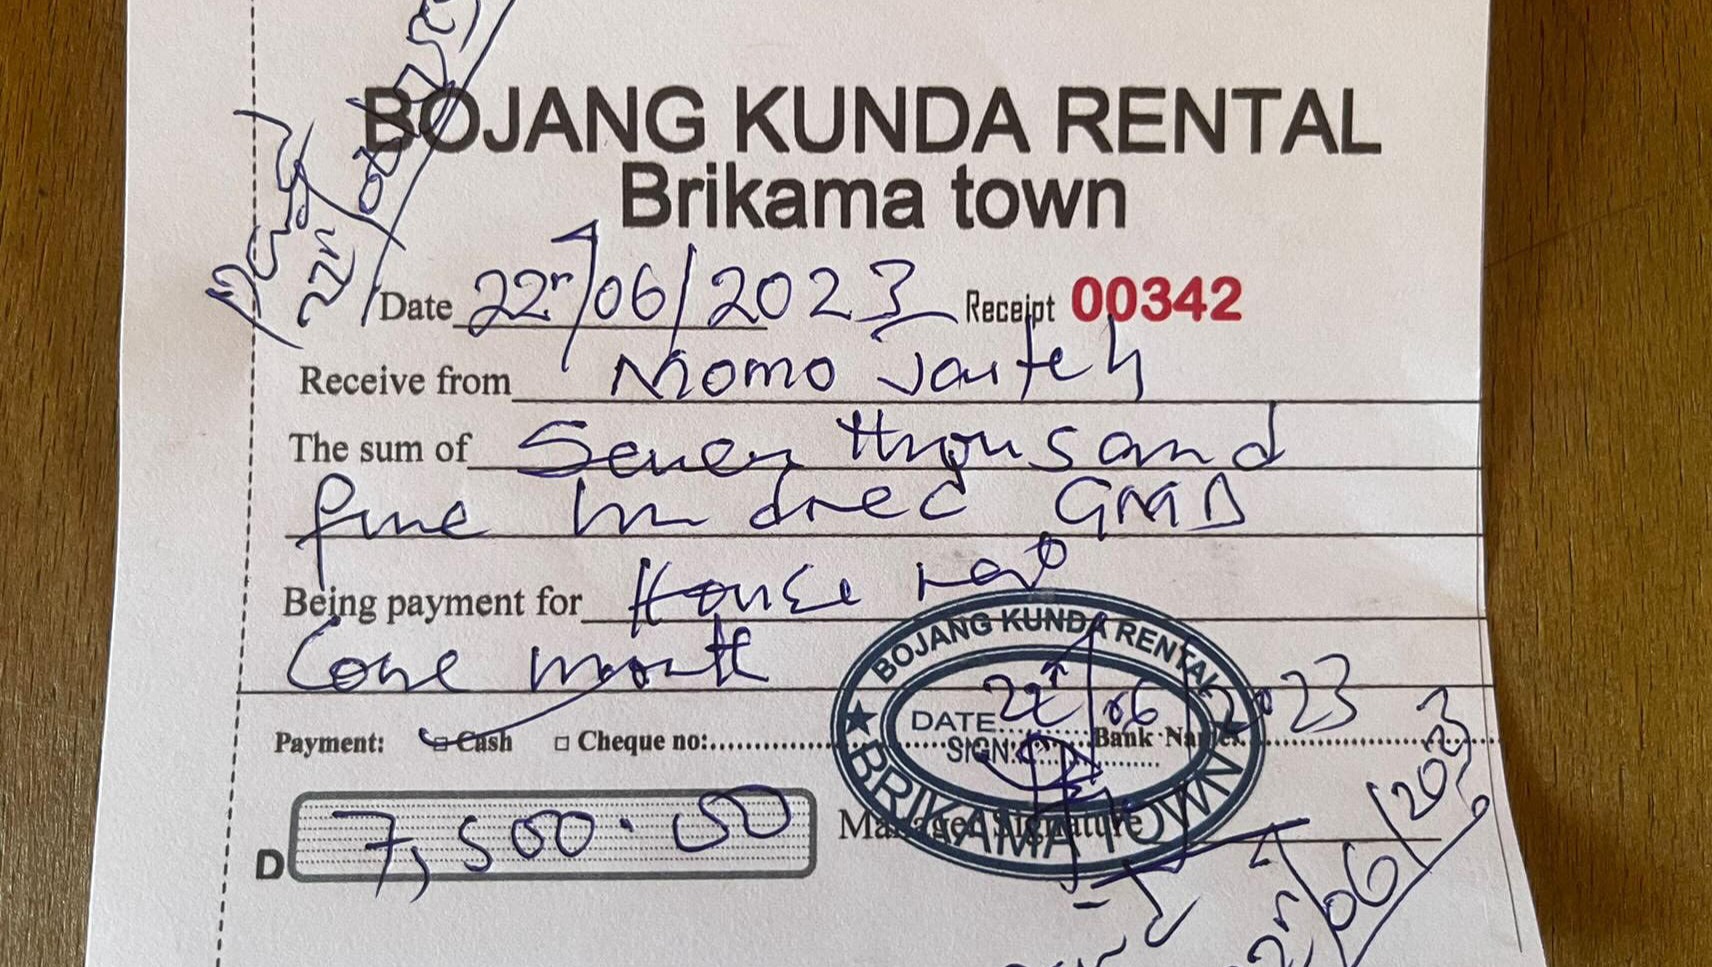 BOJANG KUNDA RENTAL
Brikama town
Date 22n/06/2023 Receipt 00342
Receive from Momo Jaiteh
The sum of Seven thousand
five hundred GMD
Being payment for House rent
(one month
Payment: Cash Cheque no:.................... Bank Name:....................
D 7,500.00 Manager Signature
BOJANG KUNDA RENTAL
DATE 22n/06/2023
SIGN:
BRIKAMA TOWN
22n/06/2023